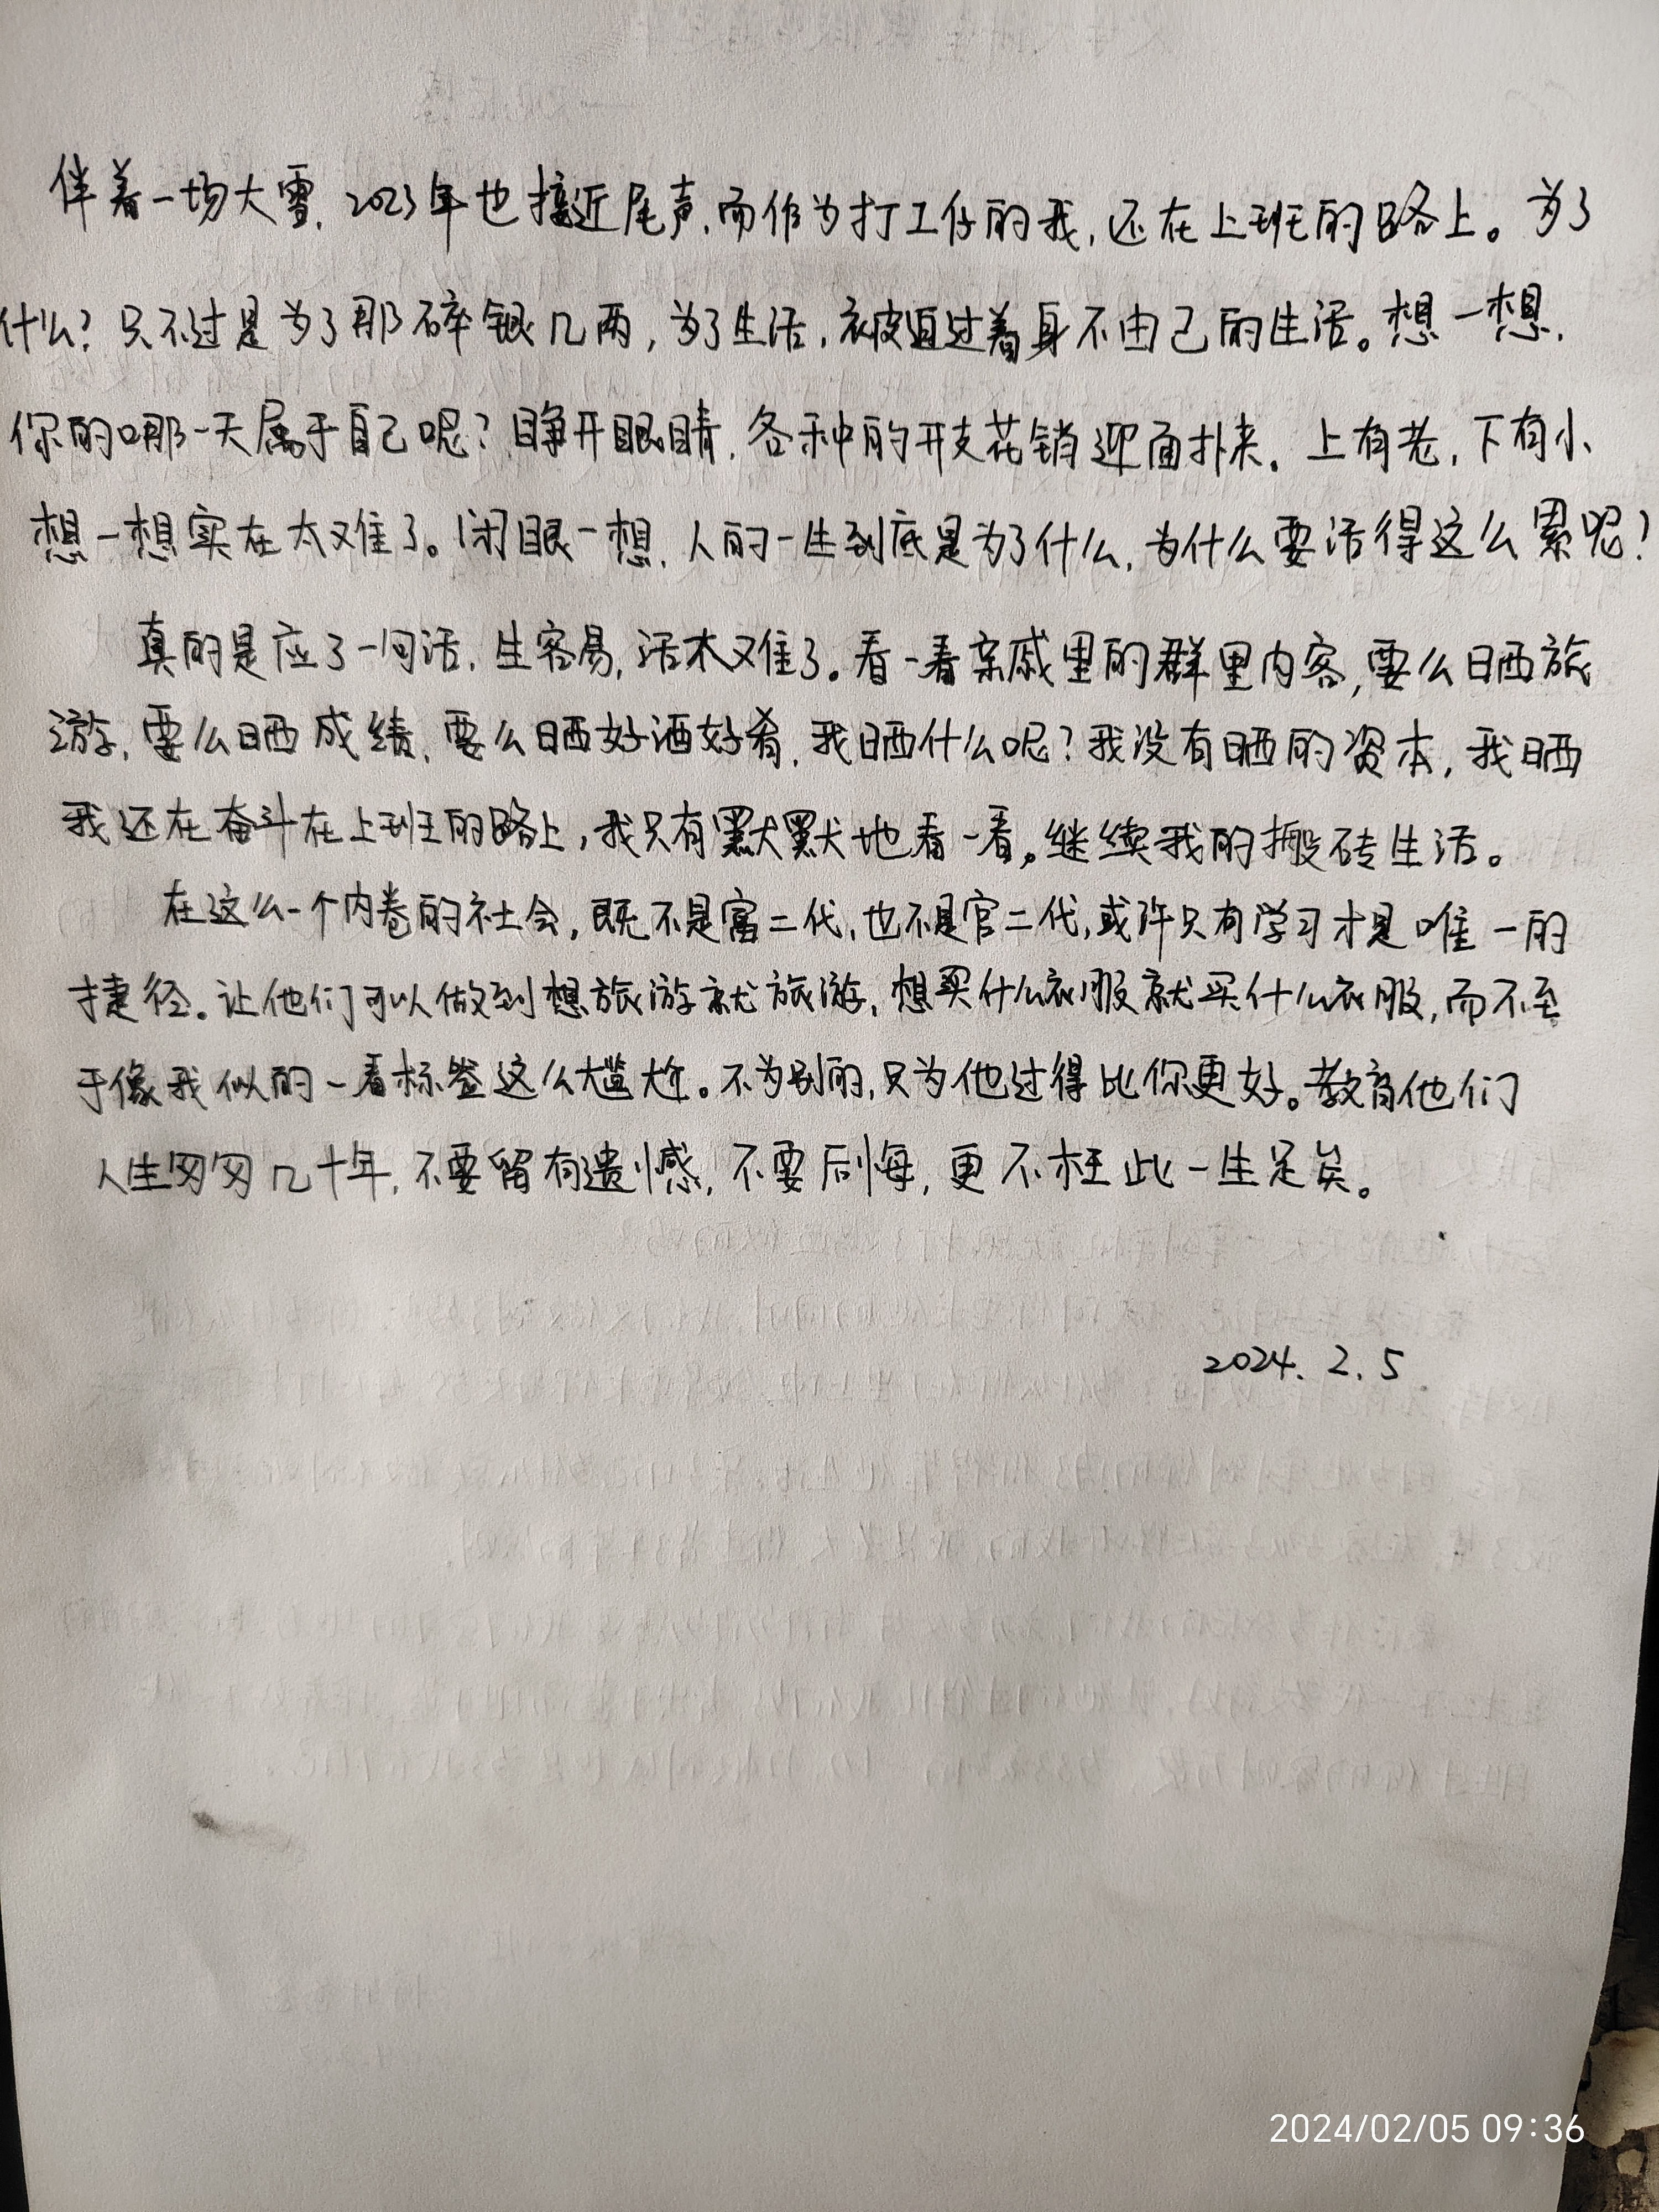 伴着一场大雪，2023年也接近尾声，而作为打工仔的我，还在上班的路上。为了
什么？只不过是为了那碎银几两，为了生活，被迫过着身不由己的生活。想一想，
你的哪一天属于自己呢？睁开眼睛，各种的开支花销迎面扑来。上有老，下有小、
想一想实在太难了。闭眼一想，人的一生到底是为了什么，为什么要活得这么累呢？
真的是应了一句话，生容易，活太难了。看一看亲戚里的群里内容，要么晒旅
游，要么晒成绩，要么晒好酒好肴，我晒什么呢？我没有晒的资本，我晒
我还在奋斗在上班的路上，我只有默默地看一看。继续我的搬砖生活。
在这么一个内卷的社会，既不是富二代，也不是官二代，或许只有学习才是唯一的
捷径。让他们可以做到想旅游就旅游，想买什么衣服就买什么衣服，而不至
于像我似的一看标签这么尴尬。不为别的，只为他过得比你更好。教育他们
人生匆匆几十年，不要留有遗憾，不要后悔，更不枉此一生足矣。
2024.2.5
2024/02/05 09:36